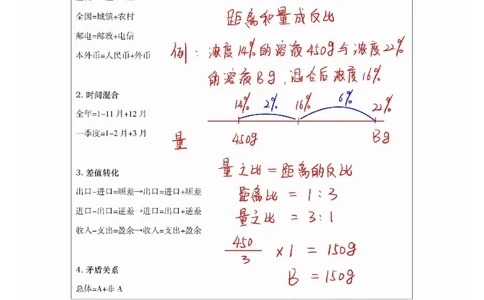 全国=城镇+农村
邮电=邮政+电信
本外币=人民币+外币
2. 时间混合
全年=1-11月+12月
一季度=1-2月+3月
3. 差值转化
出口-进口=顺差→出口=进口+顺差
进口-出口=逆差→进口=出口+逆差
收入-支出=盈余→收入=支出+盈余
4. 矛盾关系
总体=A+非A
距离和量成反比
例：浓度14%的溶液450g与浓度22%
的溶液Bg，混合后浓度16%
14% 2% 16% 6% 22%
量 450g Bg
量之比=距离的反比
距离比 = 1:3
量之比 = 3:1
450/3 ×1 = 150g
B = 150g